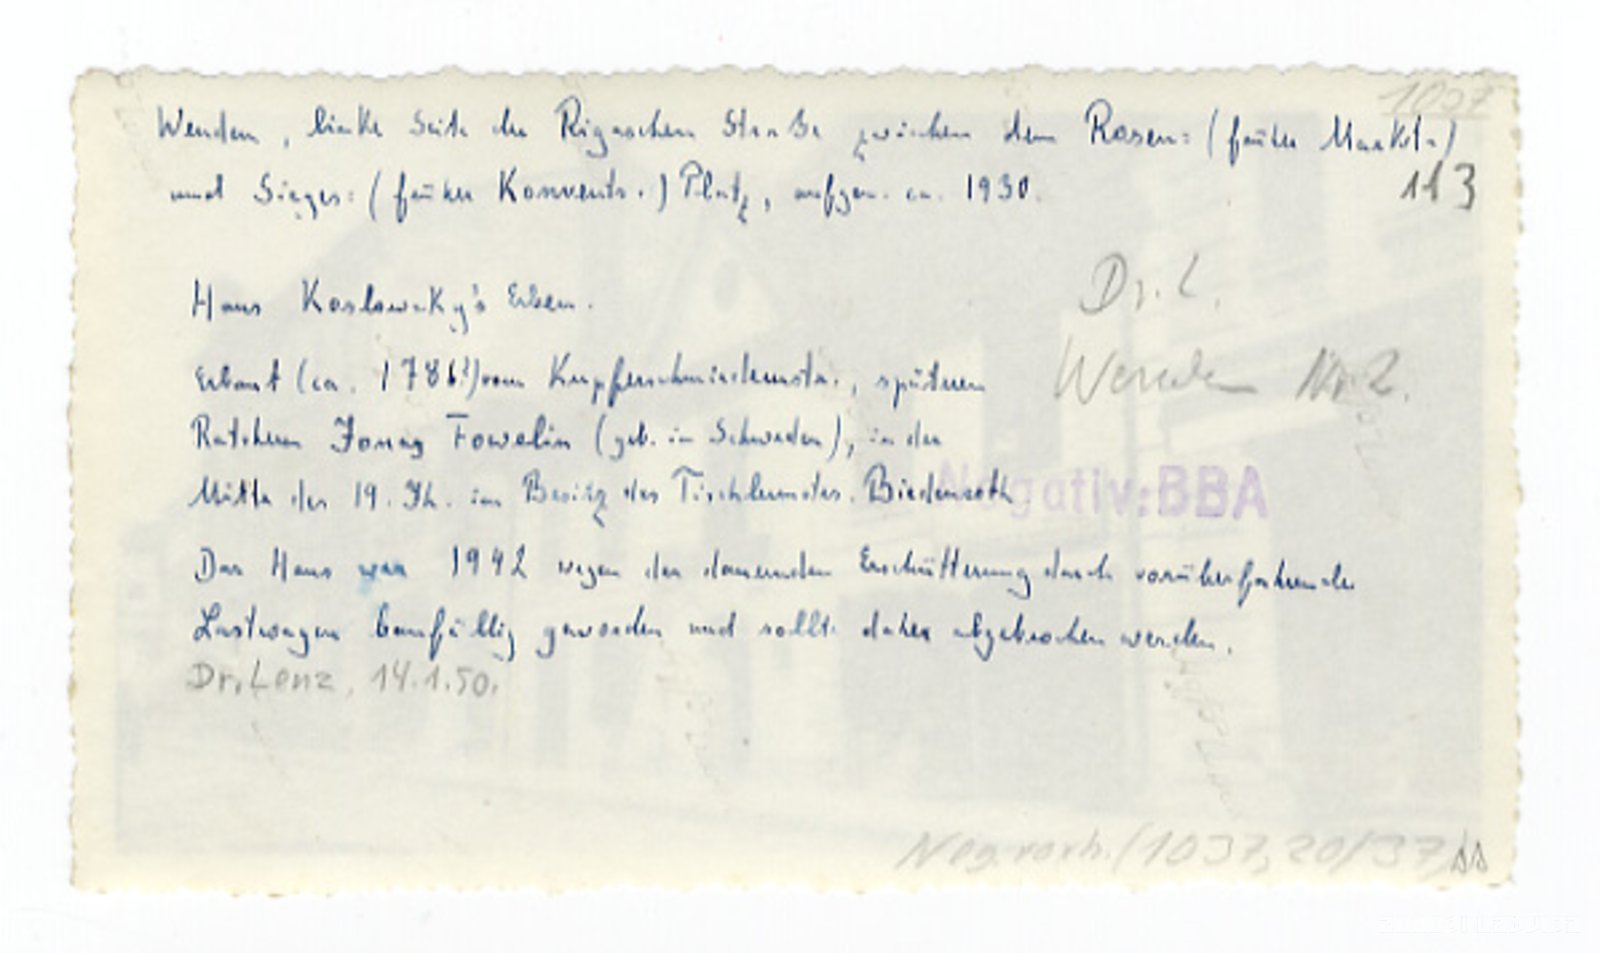 1037
Wenden, linke Seite der Rigaschen Straße zwischen dem Rosen= (früher Markt=)
113
und Sieges= (früher Konvents.) Platz, aufgen. ca. 1930.
Dr. L.
Haus Koslowsky's Erben.
Wenden Nr. 2.
Erbaut (ca. 1786?) vom Kupferschmiedemstr., späteren
Ratsherrn Jonas Fowelin (geb. in Schweden), in der
Mitte des 19. Jh. im Besitz des Tischlermstrs. Biedenroth
Negativ: BBA
Das Haus war 1942 wegen der dauernden Erschütterung durch vorüberfahrende
Lastwagen baufällig geworden und sollte daher abgebrochen werden.
Dr. Lenz, 14.1.50.
Neg. vorh. (1037, 20/37)